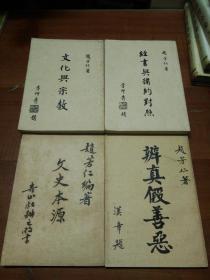 趙芳仁著
文化與宗教
趙芳仁著
經書與獨約對照
趙芳仁編著
文史本源
趙芳仁著
辨真假善惡
漢章題